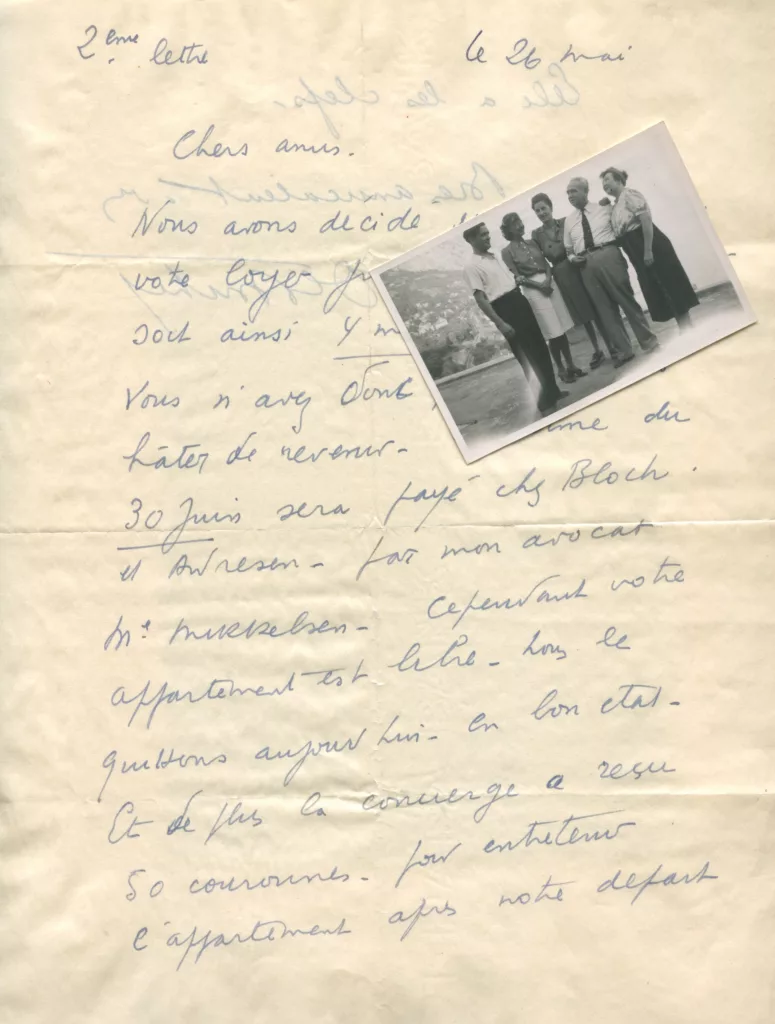 2ème lettre
le 26 mai
Chers amis.
Nous avons decide
votre loyer
soit ainsi 4 m
Vous n'avez Donc
du
hâter de revenir-
30 Juin sera payé chez Bloch.
et Andresen- par mon avocat
Mr Mikkelsen- cependant votre
appartement est libre- nous le
quittons aujourd'hui- en bon etat-
Et de plus la concierge a reçu
50 couronnes- pour entretenir
l'appartement après notre depart
Elle a les clefs.